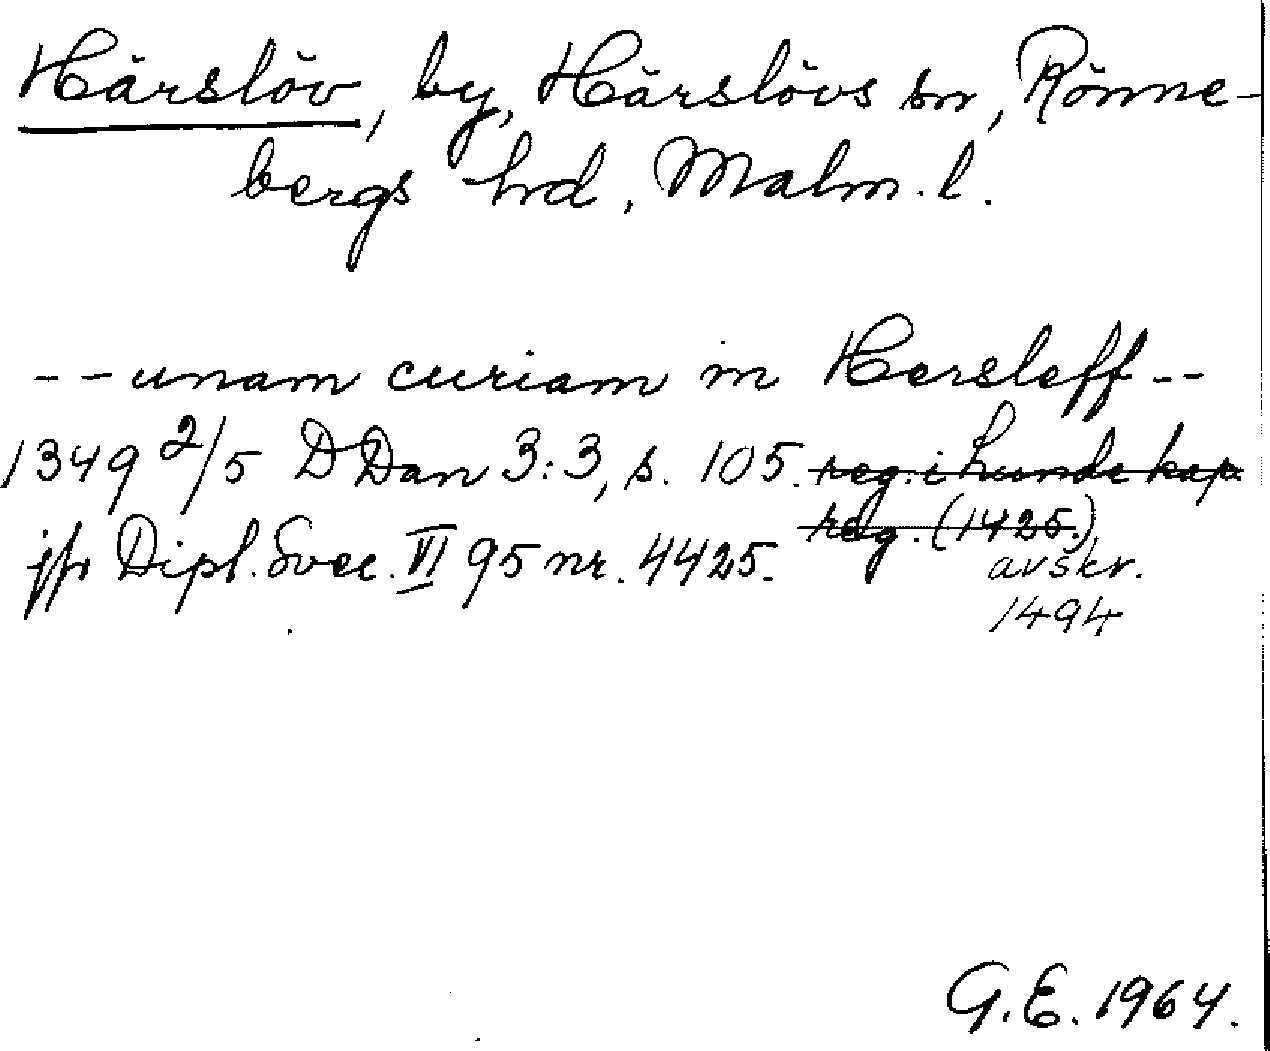 Härslöv, by, Härslövs sn, Rönne-
bergs hd, Malm. l.
-- unam curiam in Hersleff --
1349 2/5 DDan 3:3, s. 105. reg. i Lunde kap.
reg. (1425.)
jfr Dipl. Svec. VI 95 nr. 4425.
avskr.
1494
G.E. 1964.